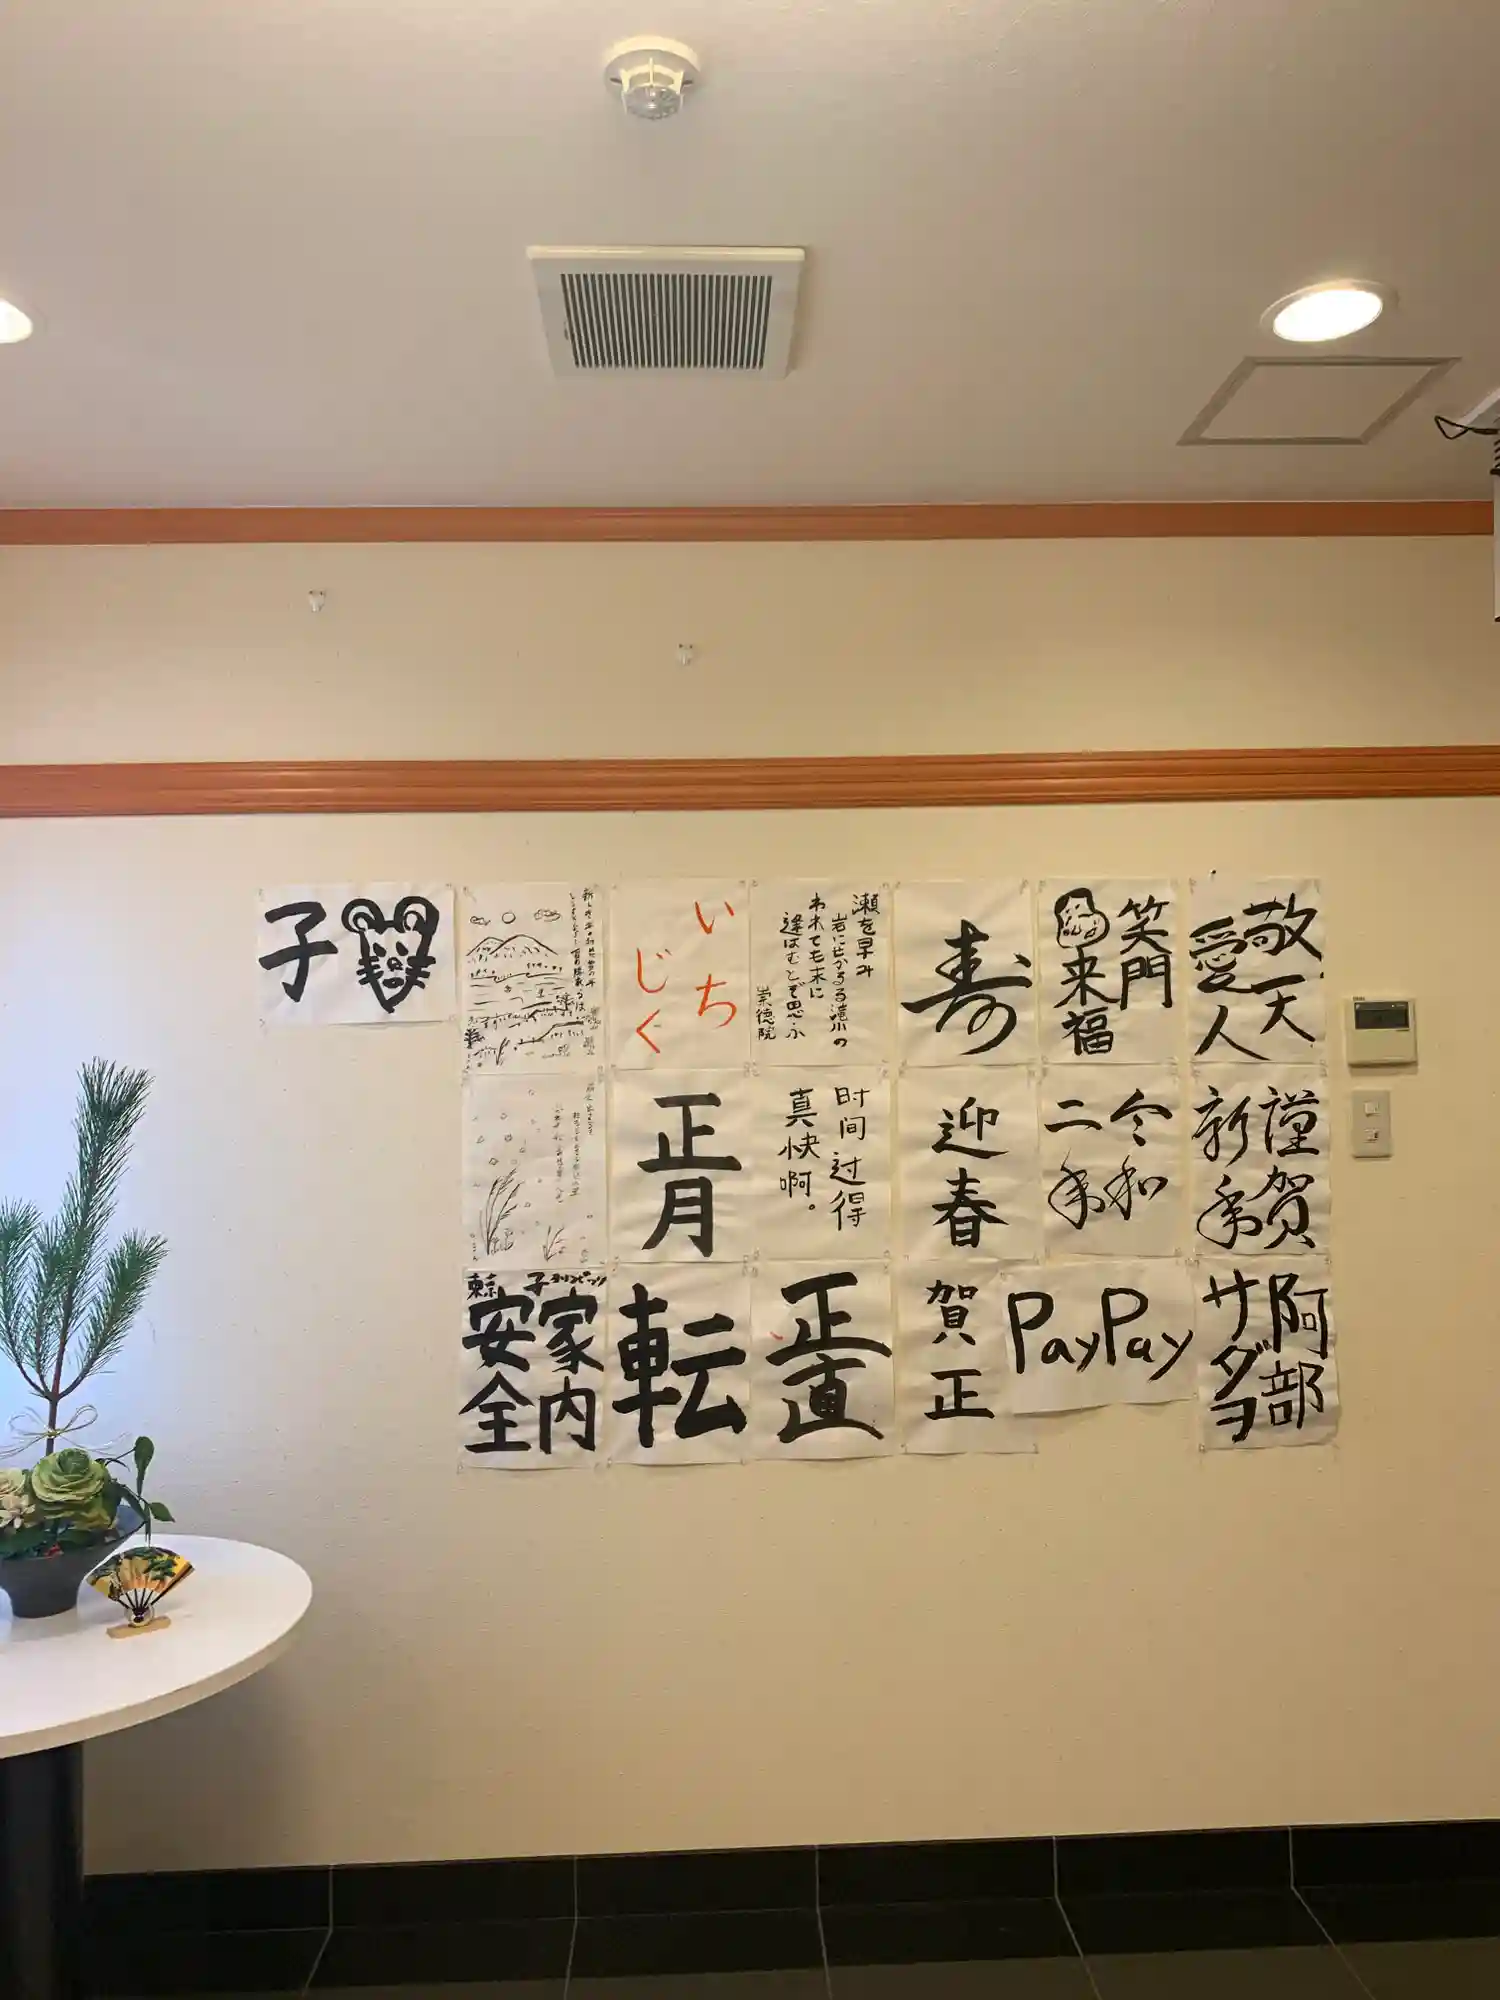 敬天
愛人
笑門
来福
寿
瀬を早み
岩にせかるる滝川の
われても末に
逢はむとぞ思ふ
崇徳院
いち
じく
子
謹賀
新年
令和
二年
迎
春
时间过得
真快啊。
正月
阿部
サダヲ
PayPay
賀正
正直
転
東京 子 オリンピック
家内
安全